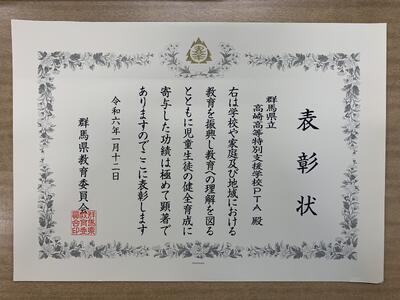 表彰状
群馬県立
高崎高等特別支援学校PTA 殿
右は学校や家庭及び地域における
教育を振興し教育への理解を図る
とともに児童生徒の健全育成に
寄与した功績は極めて顕著で
ありますのでここに表彰します
令和六年一月十二日
群馬県教育委員会
群馬県
教育委
員会印